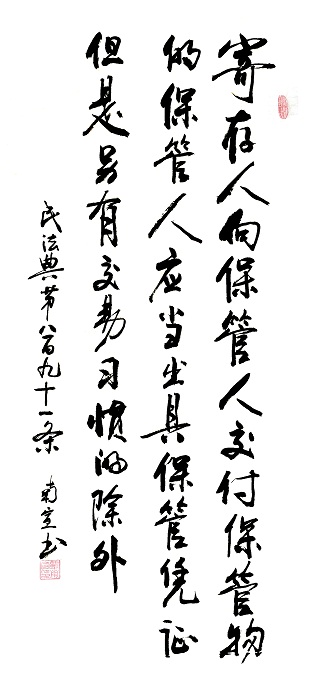 寄存人向保管人交付保管物
的保管人应当出具保管凭证
但是另有交易习惯的除外
民法典第八百九十一条
南室书